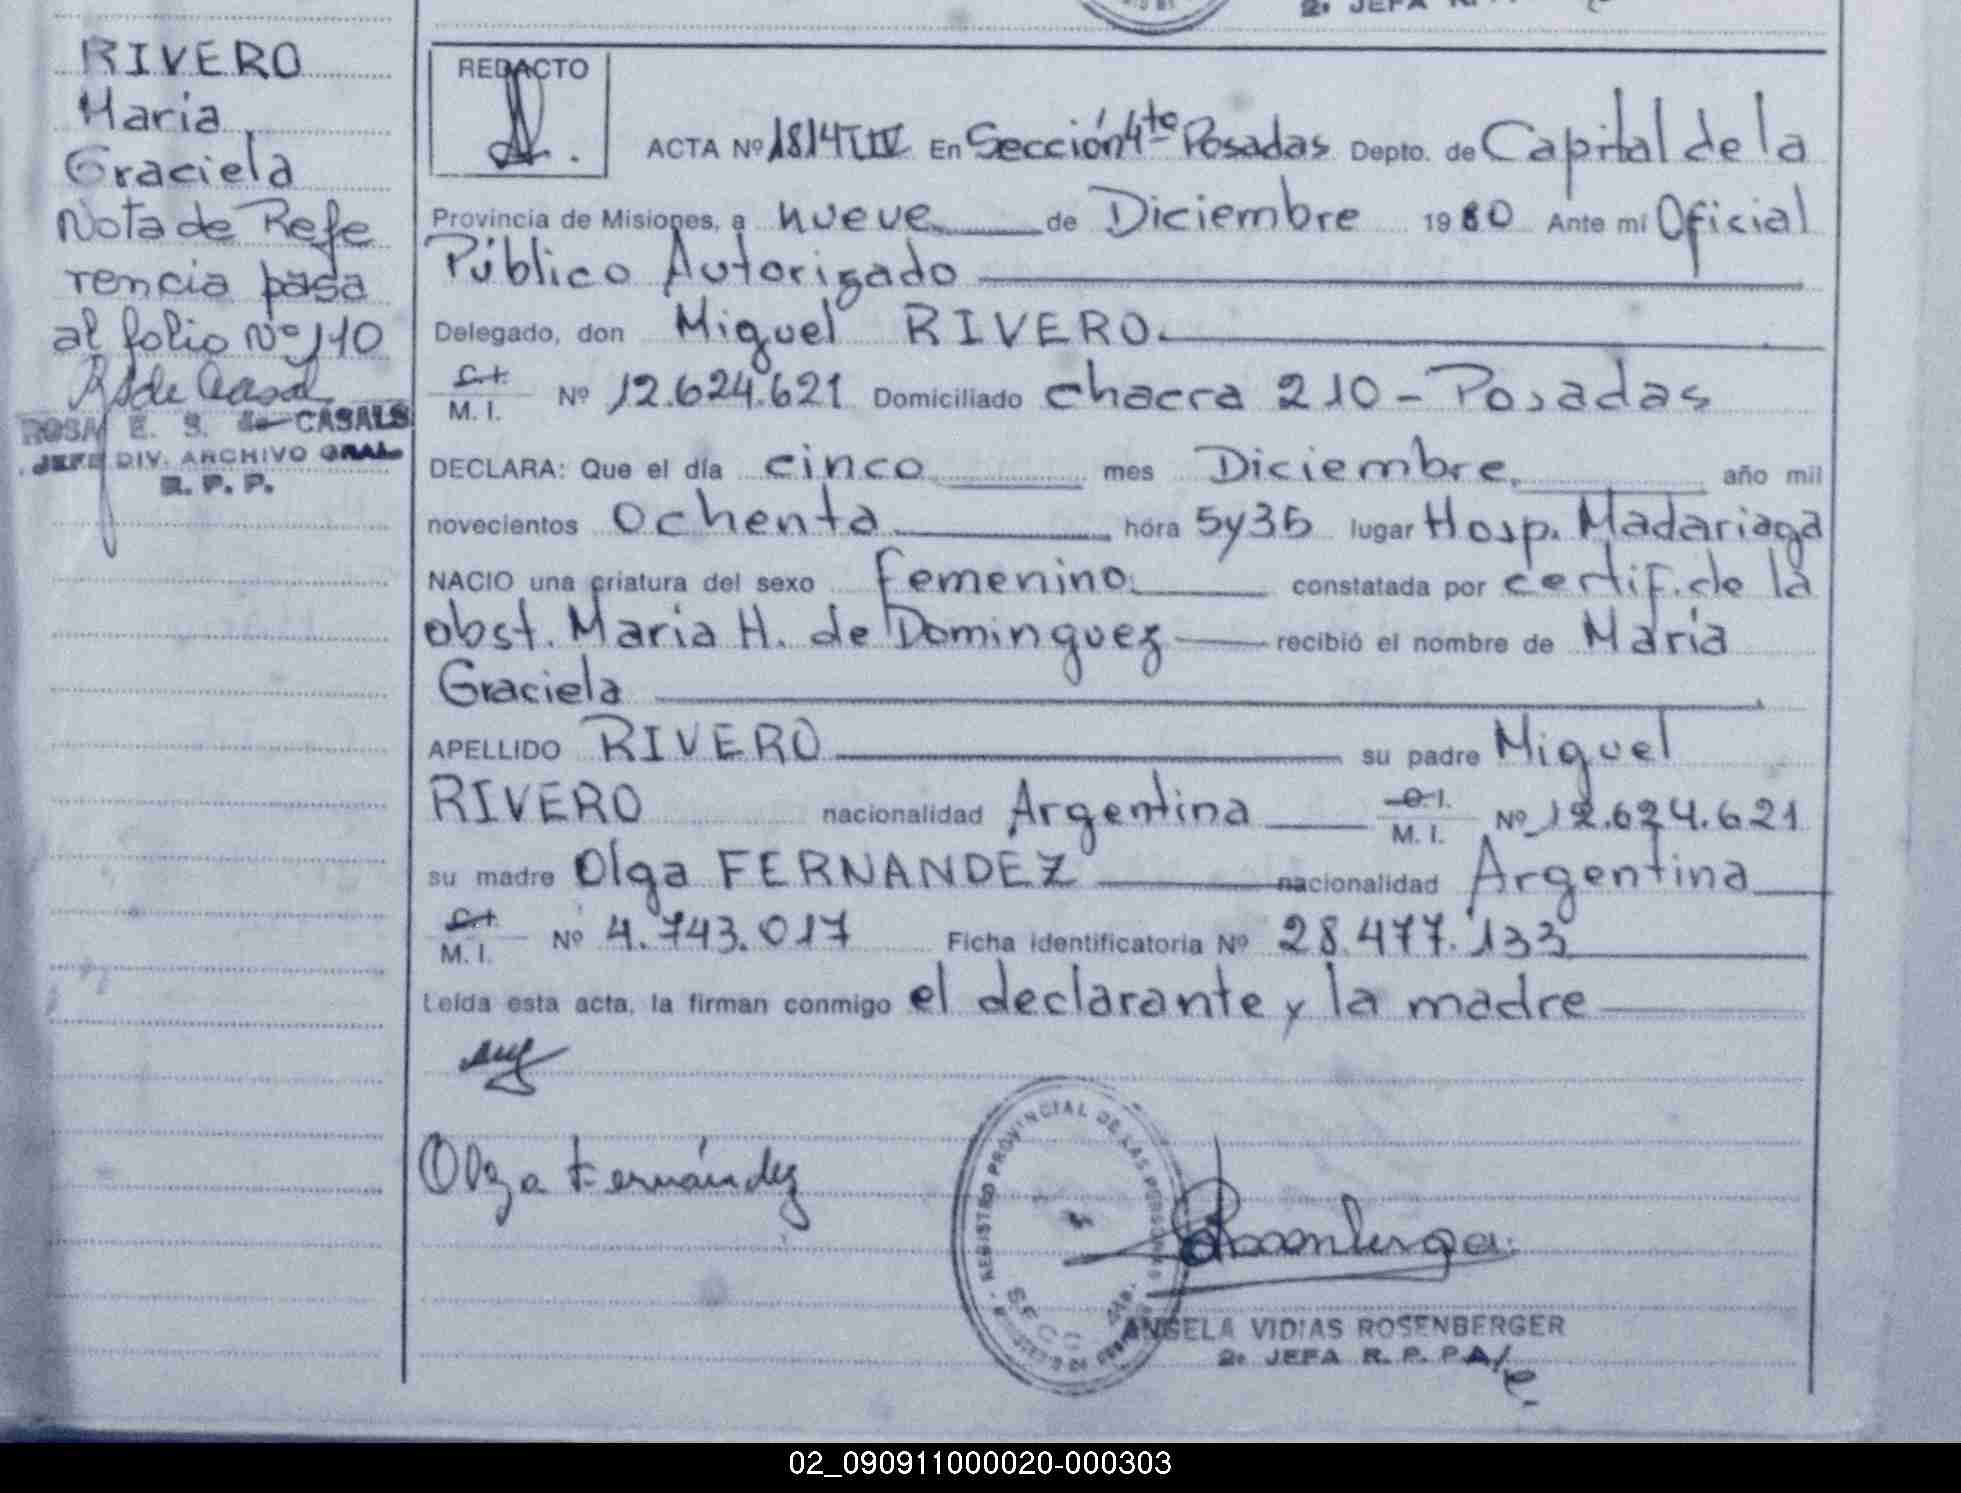 2º JEFA R. P.
RIVERO
Maria
Graciela
Nota de Refe
rencia pasa
al folio Nº 110
ROSA E. S. de CASALS
JEFE DIV. ARCHIVO GRAL.
R. P. P.
REDACTO
ACTA Nº 1814 T IV En Sección 4ta Posadas Depto. de Capital de la
Provincia de Misiones, a nueve de Diciembre 1980 Ante mí Oficial
Público Autorizado
Delegado, don Miguel RIVERO.
C. I. M. I. Nº 12.624.621 Domiciliado chacra 210 - Posadas
DECLARA: Que el día cinco mes Diciembre año mil
novecientos Ochenta hora 5y35 lugar Hosp. Madariaga
NACIO una criatura del sexo femenino. constatada por certif. de la
obst. Maria H. de Dominguez recibió el nombre de María
Graciela
APELLIDO RIVERO su padre Miguel
RIVERO nacionalidad Argentina C. I. M. I. Nº 12.624.621
su madre Olga FERNANDEZ nacionalidad Argentina
C. I. M. I. Nº 4.743.017 Ficha identificatoria Nº 28.477.133
Leída esta acta, la firman conmigo el declarante y la madre
Olga Fernández
REGISTRO PROVINCIAL DE LAS PERSONAS
SECC. 4ta.
Rosenberger
ANGELA VIDIAS ROSENBERGER
2º JEFA R. P. P. A/c
02_090911000020-000303